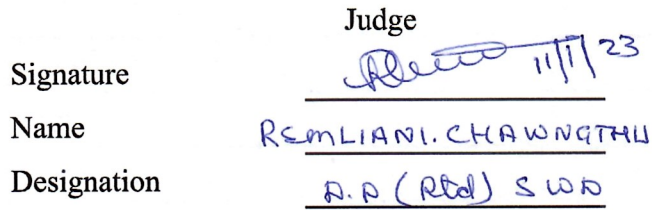 Judge
Signature 11/1/23
Name REMLIANI. CHAWNGTHU
Designation D.D (Rtd) SWD